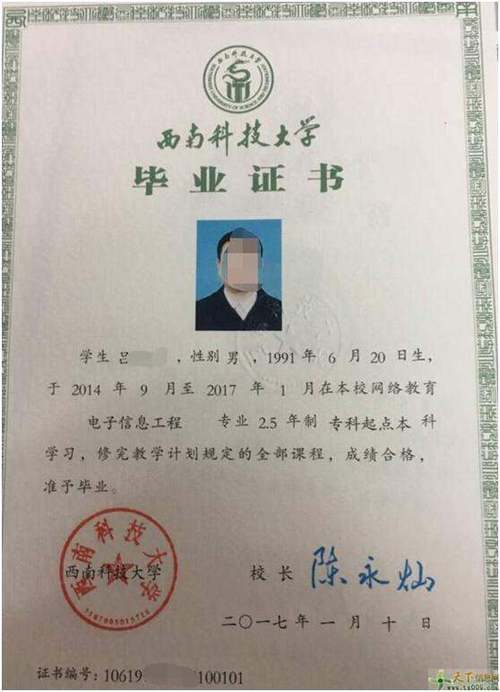 西南科技大学
SOUTHWEST UNIVERSITY OF SCIENCE AND TECHNOLOGY
西南科技大学
毕业证书
学生吕 , 性别 男 , 1991 年 6 月 20 日生,
于 2014 年 9 月至 2017 年 1 月在本校网络教育
电子信息工程 专业 2.5 年制 专科起点本 科
学习, 修完教学计划规定的全部课程, 成绩合格,
准予毕业。
西南科技大学
西南科技大学
校 长 陈永灿
二〇一七年 一 月 十 日
证书编号: 10619 100101
天下信息网